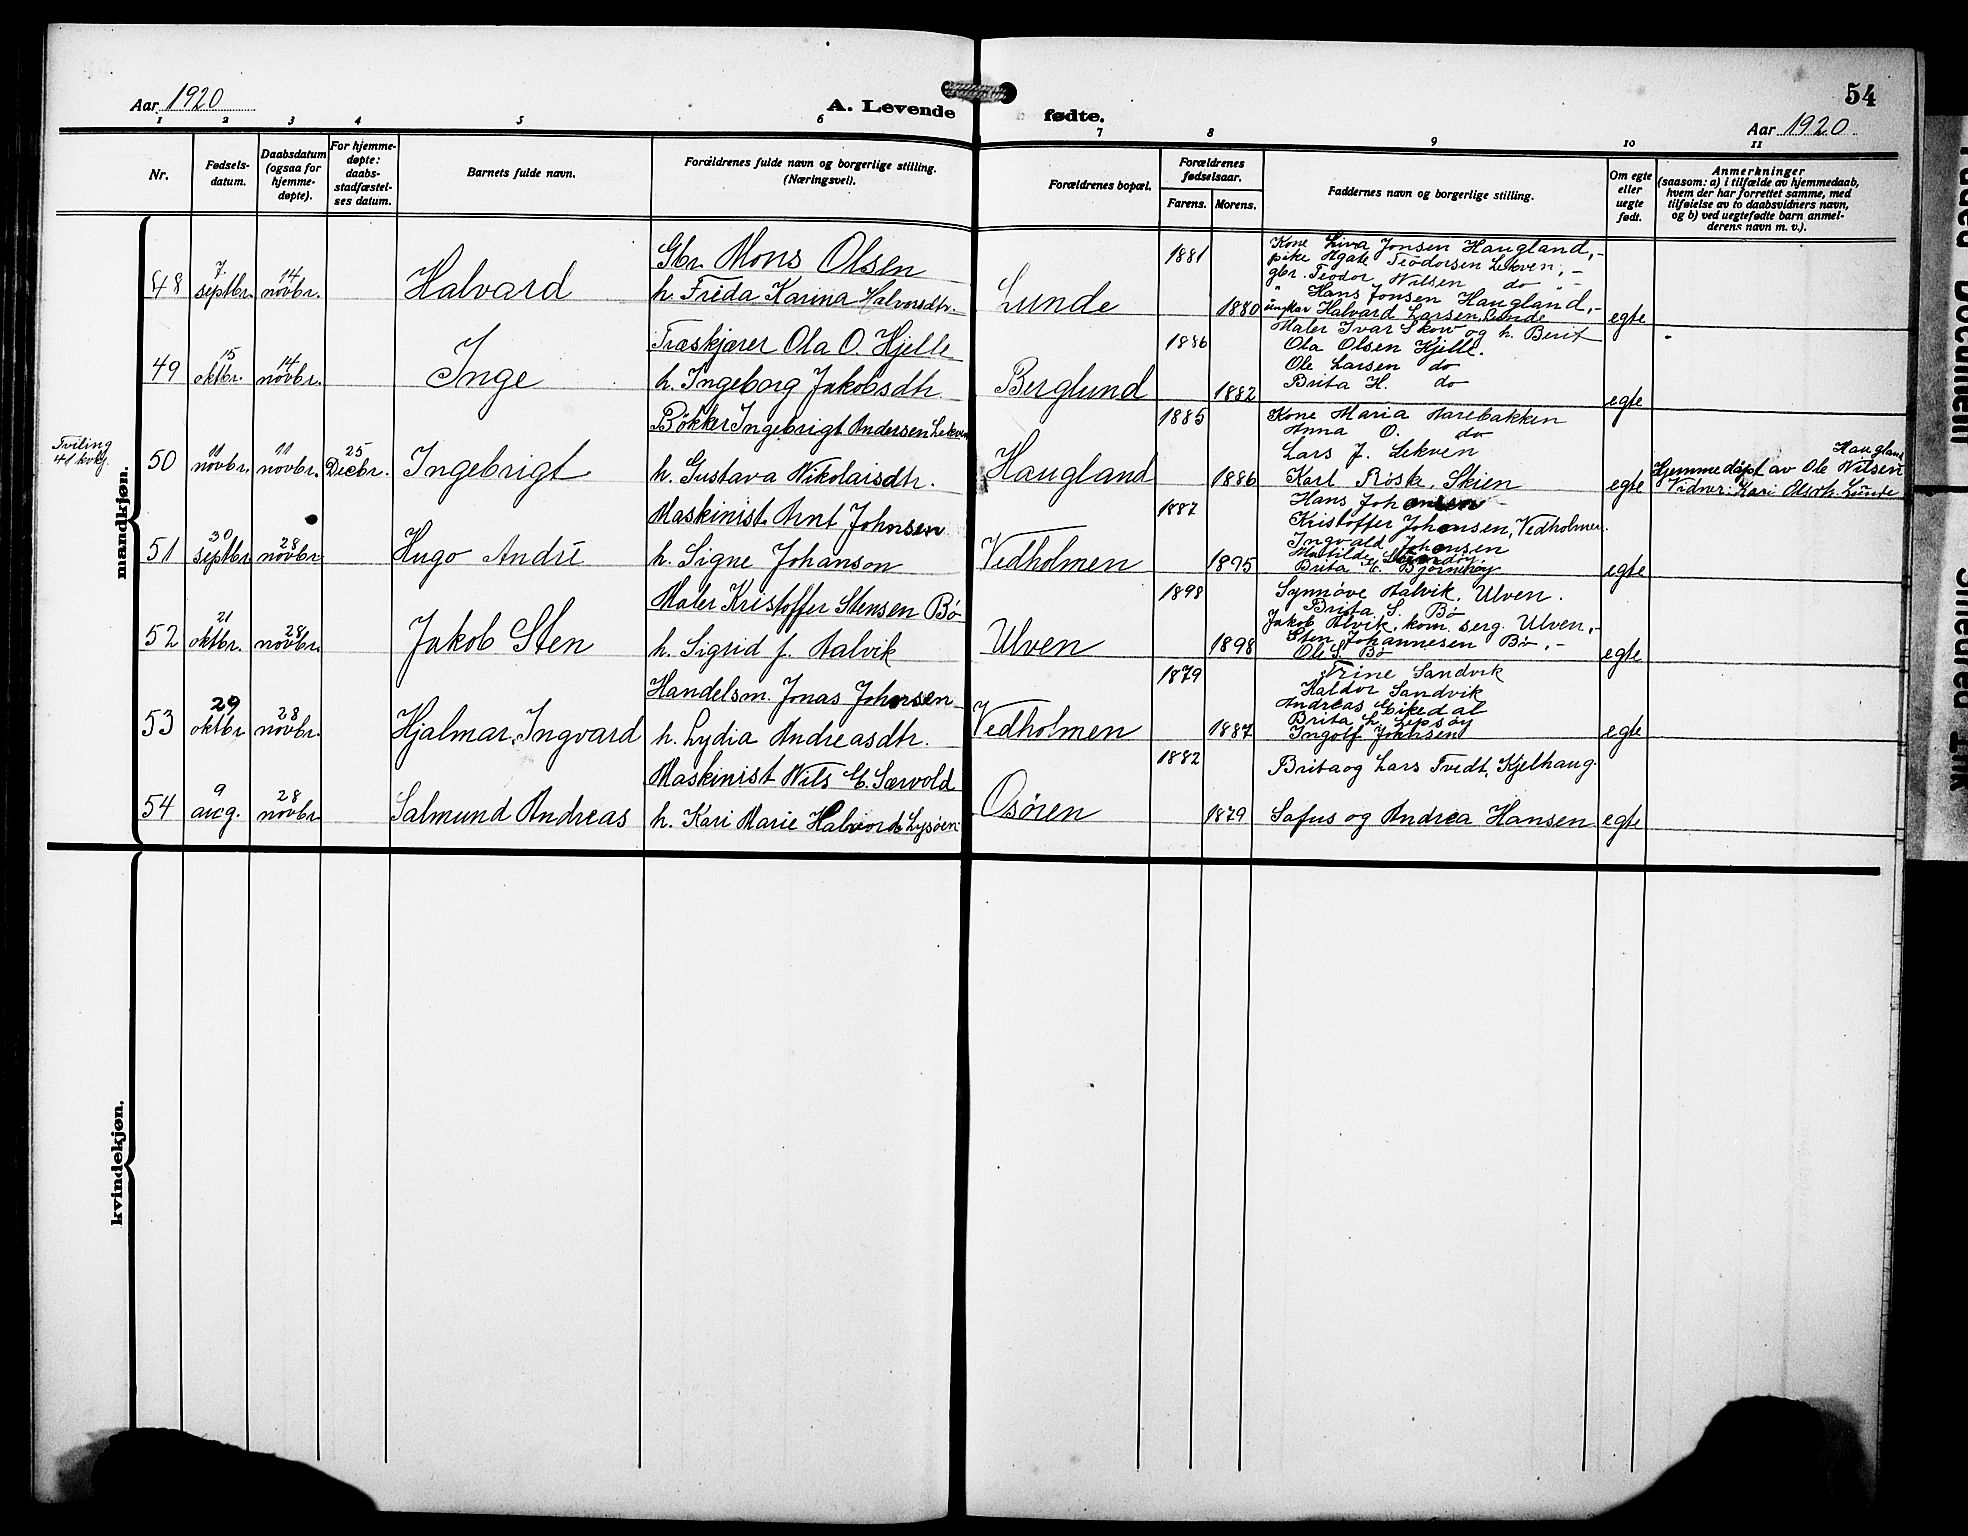 Aar 1920
A. Levende fødte.
54
Aar 1920
1 2 3 4 5 6 7 8 9 10 11
Nr.
Fødsels-
datum.
Daabsdatum
(ogsaa for
hjemme-
døpte).
For hjemme-
døpte:
daabs-
stadfæstel-
ses datum.
Barnets fulde navn.
Forældrenes fulde navn og borgerlige stilling.
(Næringsvei).
Forældrenes bopæl.
Forældrenes
fødselsaar.
Farens. Morens.
Faddernes navn og borgerlige stilling.
Om egte
eller
uegte
født.
Anmerkninger
(saasom: a) i tilfælde av hjemmedaab,
hvem der har forrettet samme, med
tilføielse av to daabsvidners navn,
og b) ved uegtefødte barn anmel-
derens navn m. v.).
mandkjøn.
48
7.
septbr.
14
novbr.
Halvard
Gbr. Mons Olsen
h. Frida Karina Halvorsdtr.
Lunde
1881
1880
Kone Liva Jonsen Haugland,-
pike Agate Teodorsen Lekven,-
gbr. Teodor Nilsen do -
" Hans Jonsen Haugland,-
ungkar Halvard Larsen Lunde
egte
49
15
oktbr.
14
novbr.
Inge
Træskjærer Ola O. Hjelle
h. Ingeborg Jakobsdtr
Berglund
1886
1882
Maler Ivar Skow og h. Berit
Ola Olsen Hjelle.
Ole Larsen do
Brita H. do
egte
Tviling
41 kvkj.
50
11
novbr.
11
novbr.
25
Decbr.
Ingebrigt
Bökker Ingebrigt Andersen Lekven
h. Gustava Nikolaisdtr.
Haugland
1885
1886
Kone Maria Harebakken
Anna O. do
Lars J. Lekven
Karl Røsk, Skien
egte
Haugland
Hjemmedøpt av Ole Nilsen
Vidner: Kari Olsdtr. Lunde
51
30
septbr.
28
novbr.
Hugo André
Maskinist Arnt Johnsen
h. Signe Johanson
Vedholmen
1887
1895
Hans Johansen
Kristoffer Johansen, Vedholmen.
Ingvald Johansen
Matilde
Brita E.
egte
52
21
oktbr.
28
novbr.
Jakob Sten
Maler Kristoffer Stensen Bö
h. Sigrid f. Aalvik
Ulven
1898
1898
Synnöve Aalvik, Ulven.
Brita S. Bö
Jakob Alvik, kom. serg. Ulven,-
Sten Johannesen Bö,-
Ole S. Bö
egte
53
29
oktbr
28
novbr.
Hjalmar Ingvard
Handelsm. Jonas Johnsen
h. Lydia Andreasdtr.
Vedholmen
1879
1887
Trine Sandvik
Haldor Sandvik
Andreas Eikedal
Brita L. Lepsöy
Ingolf Johnsen
egte
54
9
aug.
28
novbr
Salmund Andreas
Maskinist Nils E. Særvold
h. Kari Marie Halvords. Lysöen
Osören
1882
1879
Brita og Lars Tvedt, Kjelhaug.
Sofus og Andrea Hansen
egte
kvindekjøn.